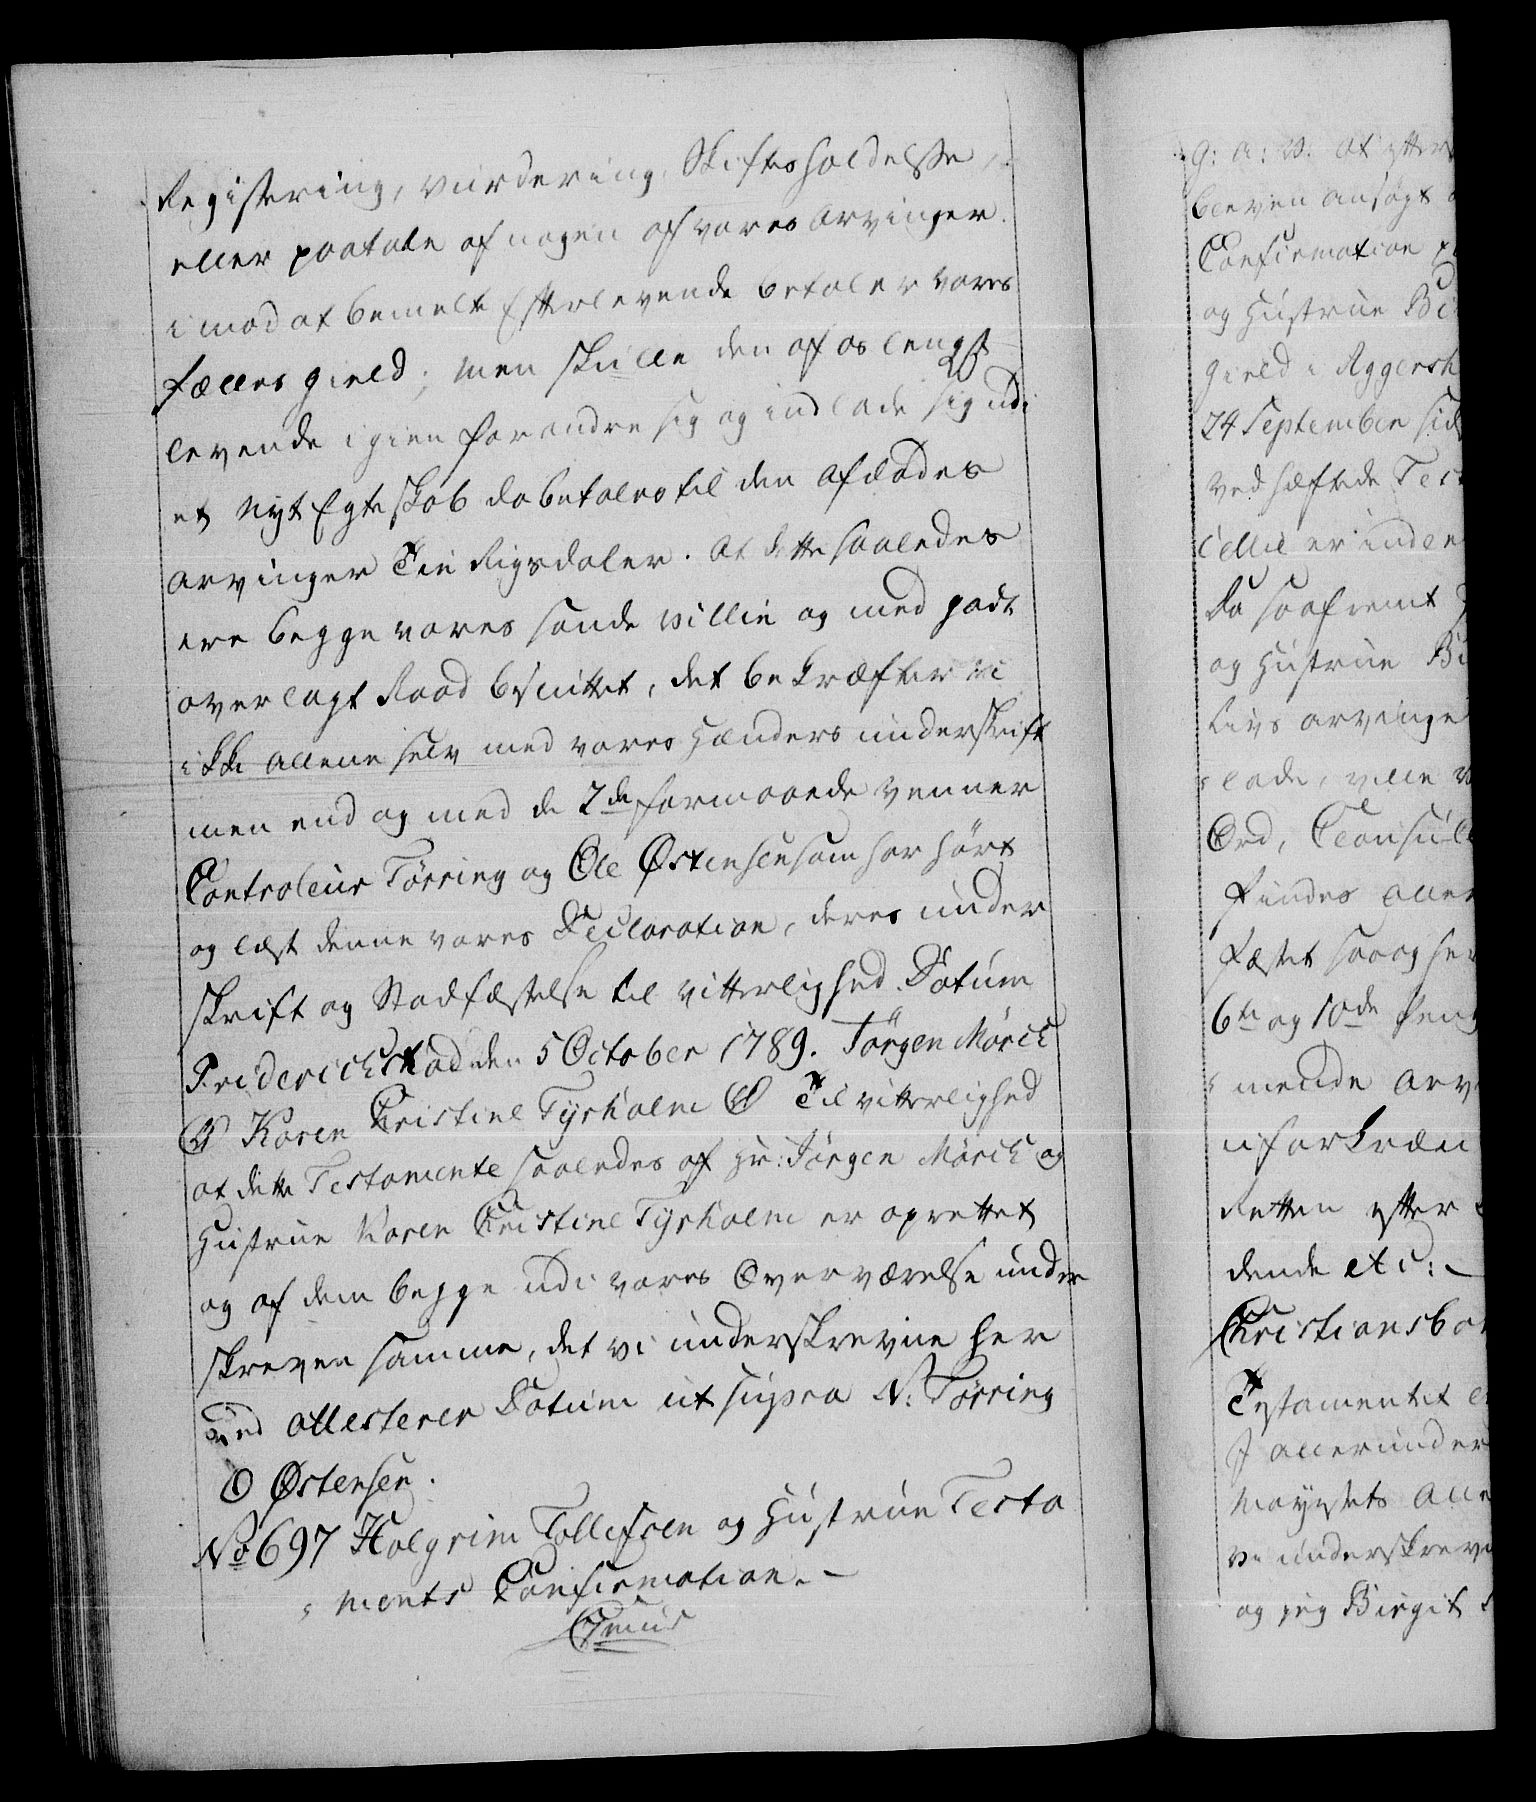 Registering, vurdering, Skiftesholdelse,
eller paatale af nogen af vores Arvinger.
imod at bemelte Efterlevende betaler vores
fælles gield; men skulle den af os lengst
levende igien forandre sig og indlade sig udi
et nyt Egteskab da betales til den afdødes
arvinger Tie Rigsdaler. At dette saaledes
ere begge vores sande villie og med godt
overlagt Raad besluttet, det bekræfter vi
ikke allene selv med vores Hænders underskrift
men end og med de 2de formaaede venner
Controleur Tørring og Ole Østensen som har hørt
og læst denne vores Declaration, deres under
skrift og Stadfæstelse til vitterlighed. Datum
Friderichstad den 5 October 1789. Jørgen Mørch
Karen Christine Tyrholm Til vitterlighed
at dette Testamente saaledes af Hr: Jørgen Mørch og
Hustrue Karen Christine Tyrholm er oprettet
og af dem begge udi vores Overværelse under
skreven samme, det vi underskrevne her
ved attesterer Datum ut supra N: Tørring
O Østensen.
No 697 Halgrim Tollefsen og Hustrue Testa
ments Confirmation.
G: A: V: at efter
bleven ansøgt
Confirmation
og Hustrue
Gield i Aggersh
24 September sid
ved hæftede Test
Da saafremt
og Hustrue
Livs arvinge
lade, ville
Ord,
findes aller
fæstet saa og her
6te og 10de Peng
mende Arv
uforkræn
Retten efter
dende etc:
Christiansbor
Testamentet
J allerunder
Mayestets Alle
vi underskrevn
og jeg Birgit